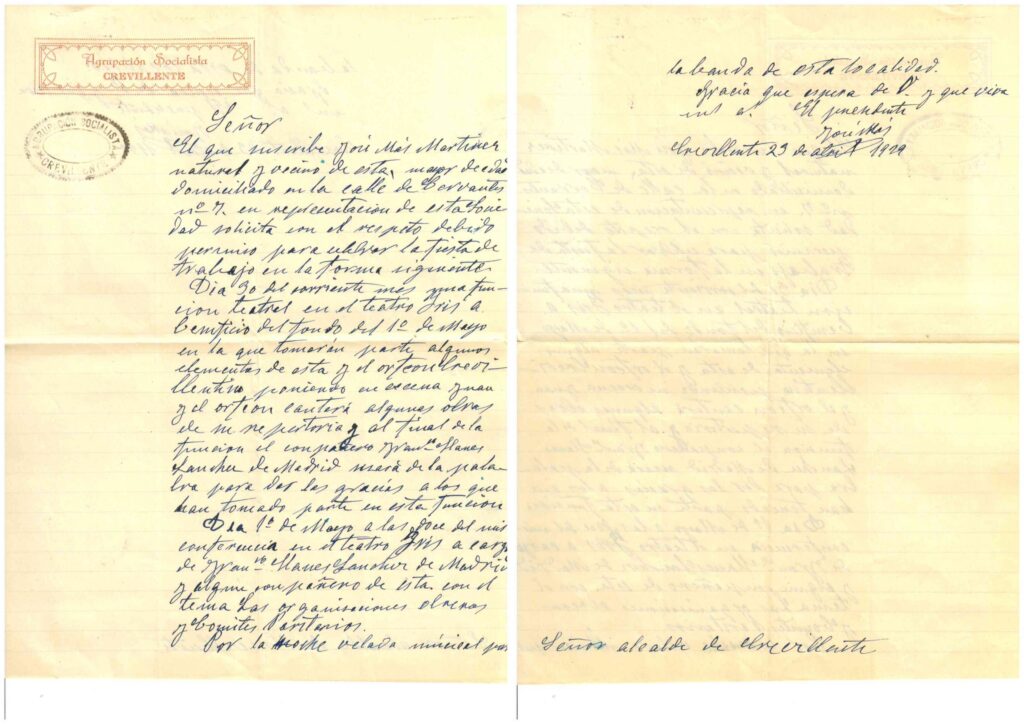 Agrupación Socialista
CREVILLENTE
AGRUPACION SOCIALISTA
CREVILLENTE
Señor
El que suscribe José Más Martinez
natural y vecino de esta, mayor de edad
domiciliado en la calle de Cervantes
nº 7. en representacion de esta Socie
dad solicita con el respeto debido
permiso para celebrar la fiesta de
trabajo en la forma siguiente.
Dia 30 del corriente mes una fun-
cion teatral en el teatro Iris a
beneficio del fondo del 1º de Mayo
en la que tomarán parte algunos
elementos de esta y el orfeon Crevi-
llentino poniendo en escena
y el orfeon cantará algunas obras
de su repertorio y al final de la
funcion el compañero Franco Llanes
Sanchez de Madrid usará de la pala-
bra para dar las gracias a los que
han tomado parte en esta funcion
Dia 1º de Mayo a las doce del mis
conferencia en el teatro Iris a cargo
de Franco Llanes Sanchez de Madrid
y algun compañero de esta con el
tema Las organisaciones obreras
y Comites Paritarios.
Por la noche velada músical por
la banda de esta localidad.
Gracia que espera de V. y que viva
El presidente
José Más
Crevillente 23 de abril 1929
Señor alcalde de Crevillente